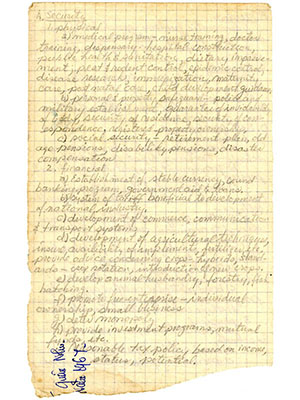 A. Security
1. physical
a) medical program - nurse training, doctor
training, dispensary - hospital construction,
public health & sanitation, dietary improve-
ment, pest & rodent control, epidemic control,
disease research, immunization, maternity
care, post natal care, child development guidance,
b) personal & property safeguards - police and
military establishment, guarantee of inviolability
of body, security of residence, security of corre-
spondence, rights of property ownership
c) social security & retirement plan, old
age pensions, disability pensions, disaster
compensation
2. financial
a) Establishment of stable currency, sound
banking program, government aid to loans.
b) system of tariff beneficial to development
of national industry.
c) development of commerce, communication
& transport systems
d) development of agricultural techniques,
provide advice concerning crops - hybrids, stand-
ards - crop rotation, introduction of new crops.
e) develop animal husbandry, forestry, fish
harvesting.
f) promote free enterprise - individual
ownership, small business
g) deter monopoly
h) provide investment programs, mutual
funds, etc.
i) reasonable tax policy, based on income,
status, potential.
1967